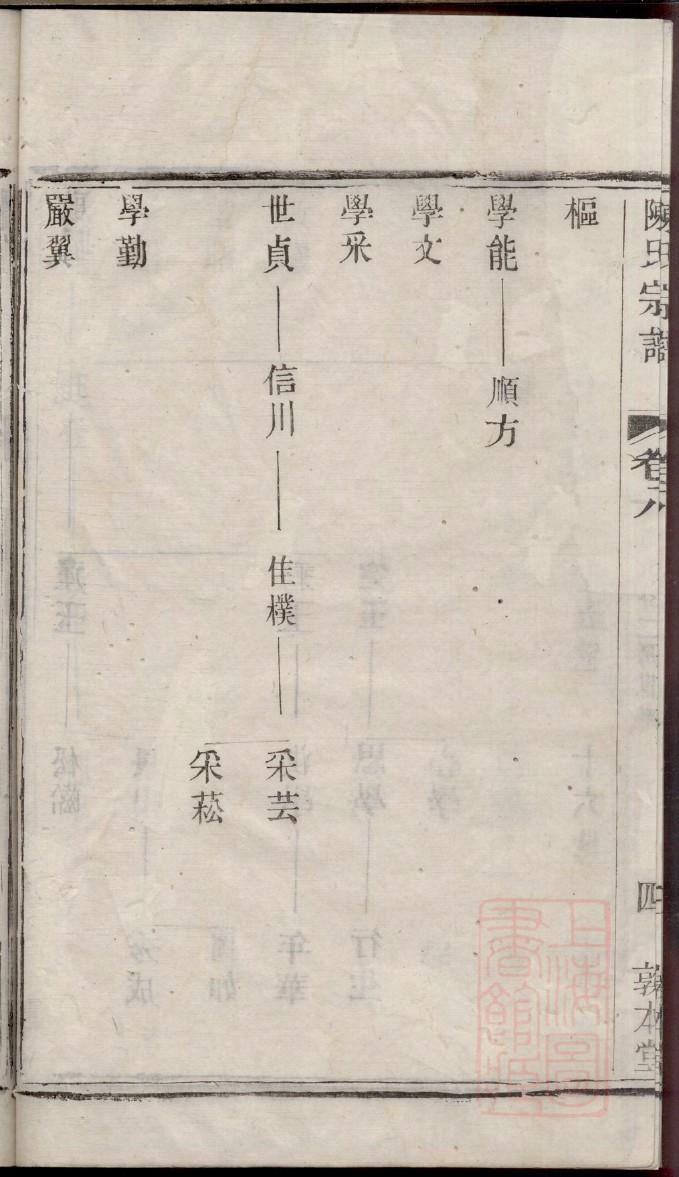 陳氏宗譜 卷六 四 敦本堂
樞
學能 順方
學文
學采
世貞 信川 佳樸 采芸
采菘
學勤
嚴翼
上海圖書館藏